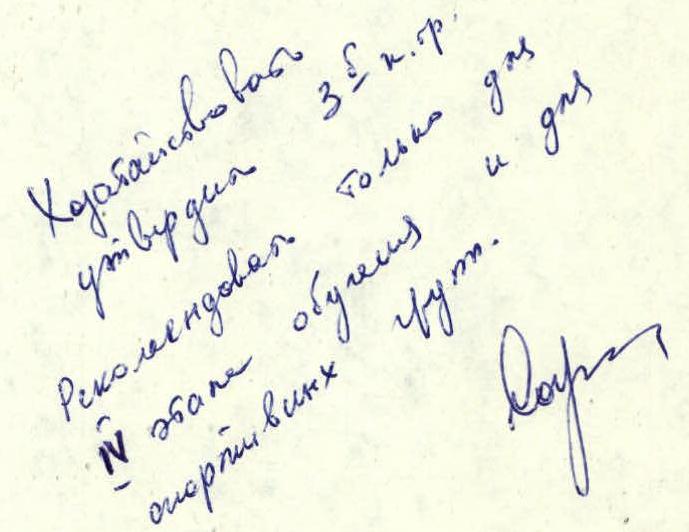 Ходатайствовать
утвердить 3б к.тр.
Рекомендовать только для
IV этапа обучения и для
спортивных групп.